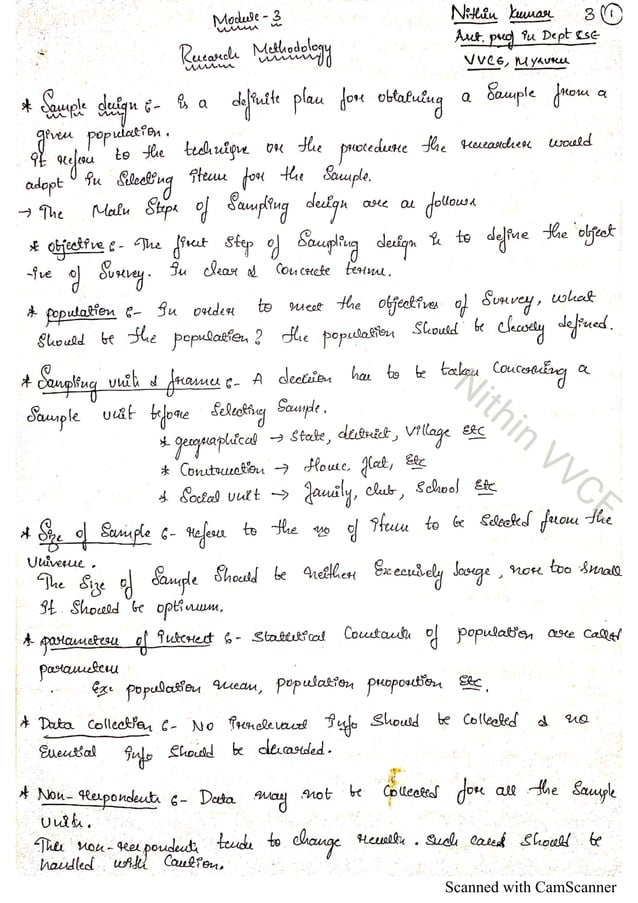 Module - 3
Nithin Kumar 3 1
Research Methodology
Ast. prof in Dept CSE
VVCE, Mysuru
* Sample design :- is a definite plan for obtaining a Sample from a
given population.
It refers to the technique or the procedure the researcher would
adopt in Selecting items for the Sample.
→ The Main Steps of Sampling design are as follows
* objective :- The first Step of Sampling design is to define the object
-ive of Survey. In clear & Concrete terms.
* population :- In order to meet the objectives of Survey, what
Should be the population? the population Should be clearly defined.
* Sampling units & frames :- A decision has to be taken Concerning a
Sample unit before Selecting Sample.
* geographical → State, district, Village Etc
* Construction → House, flat, Etc
* Social unit → family, club, School Etc
* Size of Sample :- refers to the no of items to be Selected from the
Universe.
The Size of Sample Should be neither Excessively large, nor too Small
It Should be optimum.
* parameters of interest :- Statistical Constants of population are called
parameters
Ex: population mean, population proportion Etc.
* Data Collection :- No Irrelevant Info Should be Collected & no
Essential Info Should be discarded.
* Non-respondents :- Data may not be Collected for all the Sample
Units.
The non-respondents tends to change results. Such cases Should be
handled with Caution.
Nithin VVCE
Scanned with CamScanner